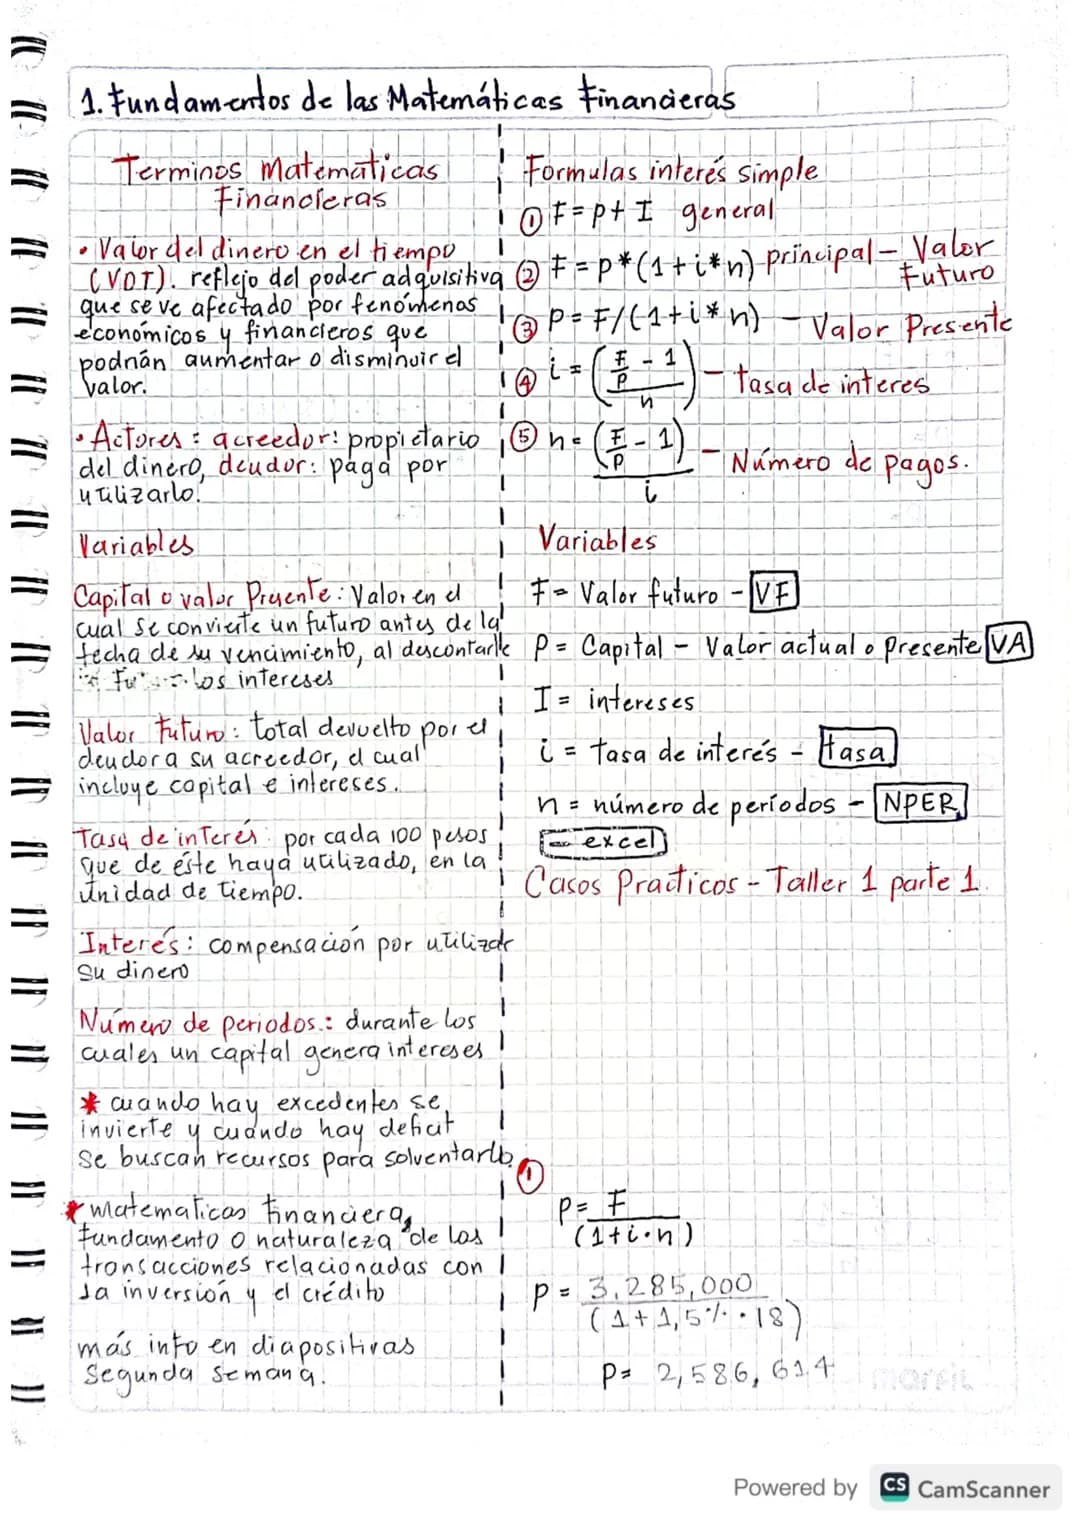 1. Fundamentos de las Matemáticas Financieras
Terminos Matematicas
Financieras
• Valor del dinero en el tiempo
(VDT). reflejo del poder adquisitiva
que se ve afectado por fenómenas
económicos y financieros que
podrián aumentar o disminuir el
valor.
• Actores: acreedor: propietario
del dinero, deudor: paga por
utilizarlo.
Variables
Capital o valor Presente: Valor en el
cual se convierte un futuro antes de la
fecha de su vencimiento, al descontarle
los intereses
Valor Futuro: total devuelto por el
deudor a su acreedor, el cual
incluye capital e intereses.
Tasa de interés: por cada 100 pesos
que de éste haya utilizado, en la
Unidad de tiempo.
Interés: compensación por utilizar
su dinero
Número de periodos.: durante los
cuales un capital genera intereses
* cuando hay excedentes se
invierte y cuando hay deficit
se buscan recursos para solventarlo.
* Matematicas financiera,
fundamento o naturaleza de las
transacciones relacionadas con
la inversión y el crédito
más info en diapositivas
Segunda semana.
Formulas interés simple
① F = P + I general
② F = P*(1+i*n) - principal - Valor
Futuro
③ P = F/(1+i*n) - Valor Presente
④ i = (F/P - 1 / n) - tasa de interes
⑤ n = (F/P - 1) / i - Número de pagos.
Variables
F = Valor futuro - VF
P = Capital - Valor actual o presente VA
I = intereses
i = tasa de interés - tasa
n = número de períodos - NPER
- excel
Casos Practicos - Taller 1 parte 1.
①
P = F
(1+i·n)
P = 3,285,000
(1+1,5%·18)
P = 2,586,614
Powered by CS CamScanner